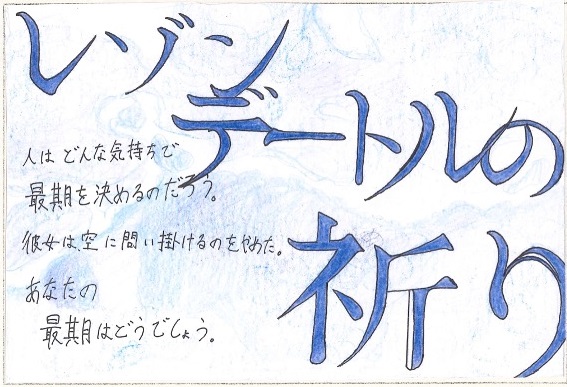 レゾン
デートルの
祈り
人はどんな気持ちで
最期を決めるのだろう。
彼女は、空に問い掛けるのをやめた。
あなたの
最期はどうでしょう。